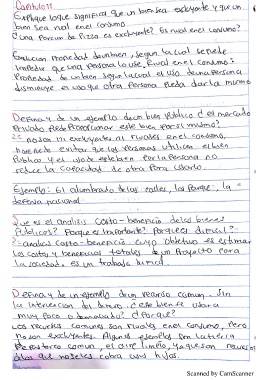 Capitulo 11
Explique loque significa que un bien sea excluyente y que un
bien sea rival enel consumo
¿ una Porcion de Pizza es excluyente? Es rival enel consumo?
Exclusion Propiedad deunbien, segun lacual sepuede
Impedir a una persona louse, Rival enel consumo:
Propiedad de unbien segunlacual el uso deunapersona
disminuye el usoque otra Persona Pueda darle mismo
Defina y de un ejemplo deun bien público ¿ el mercado
Privado Puede Proporcionar este bien porsi mismo?
noson ni excluyentes ni rivales enel consumo,
nosepuede evitar que las personas utilicen elbien
Público y el usode estebien por la Persona no
reduce la capacidad de otra para usarlo.
Ejemplo: El alumbrado de las calles, los Parque, la
defensa nacional
Que es el analisis Costo-beneficio delos bienes
Públicos? Porque es importante? Porquees dificil?
analisis costo-beneficio cuyo objetivo es estimar
Los costos y beneficios totales de un Proyecto para
la sociedad. es un trabajo dificil.
Defina y de un ejemplo deun recurso comun. Sin
la intervencion del ¿este bien se usara
muy poco o demasiado? ¿Porque?
Los recursos comunes son rivales enel consumo, pero
noson excluyentes. Algunos ejemplos son
comun, el aire limpio, yaqueson
alos que nose les cobra
Scanned by CamScanner